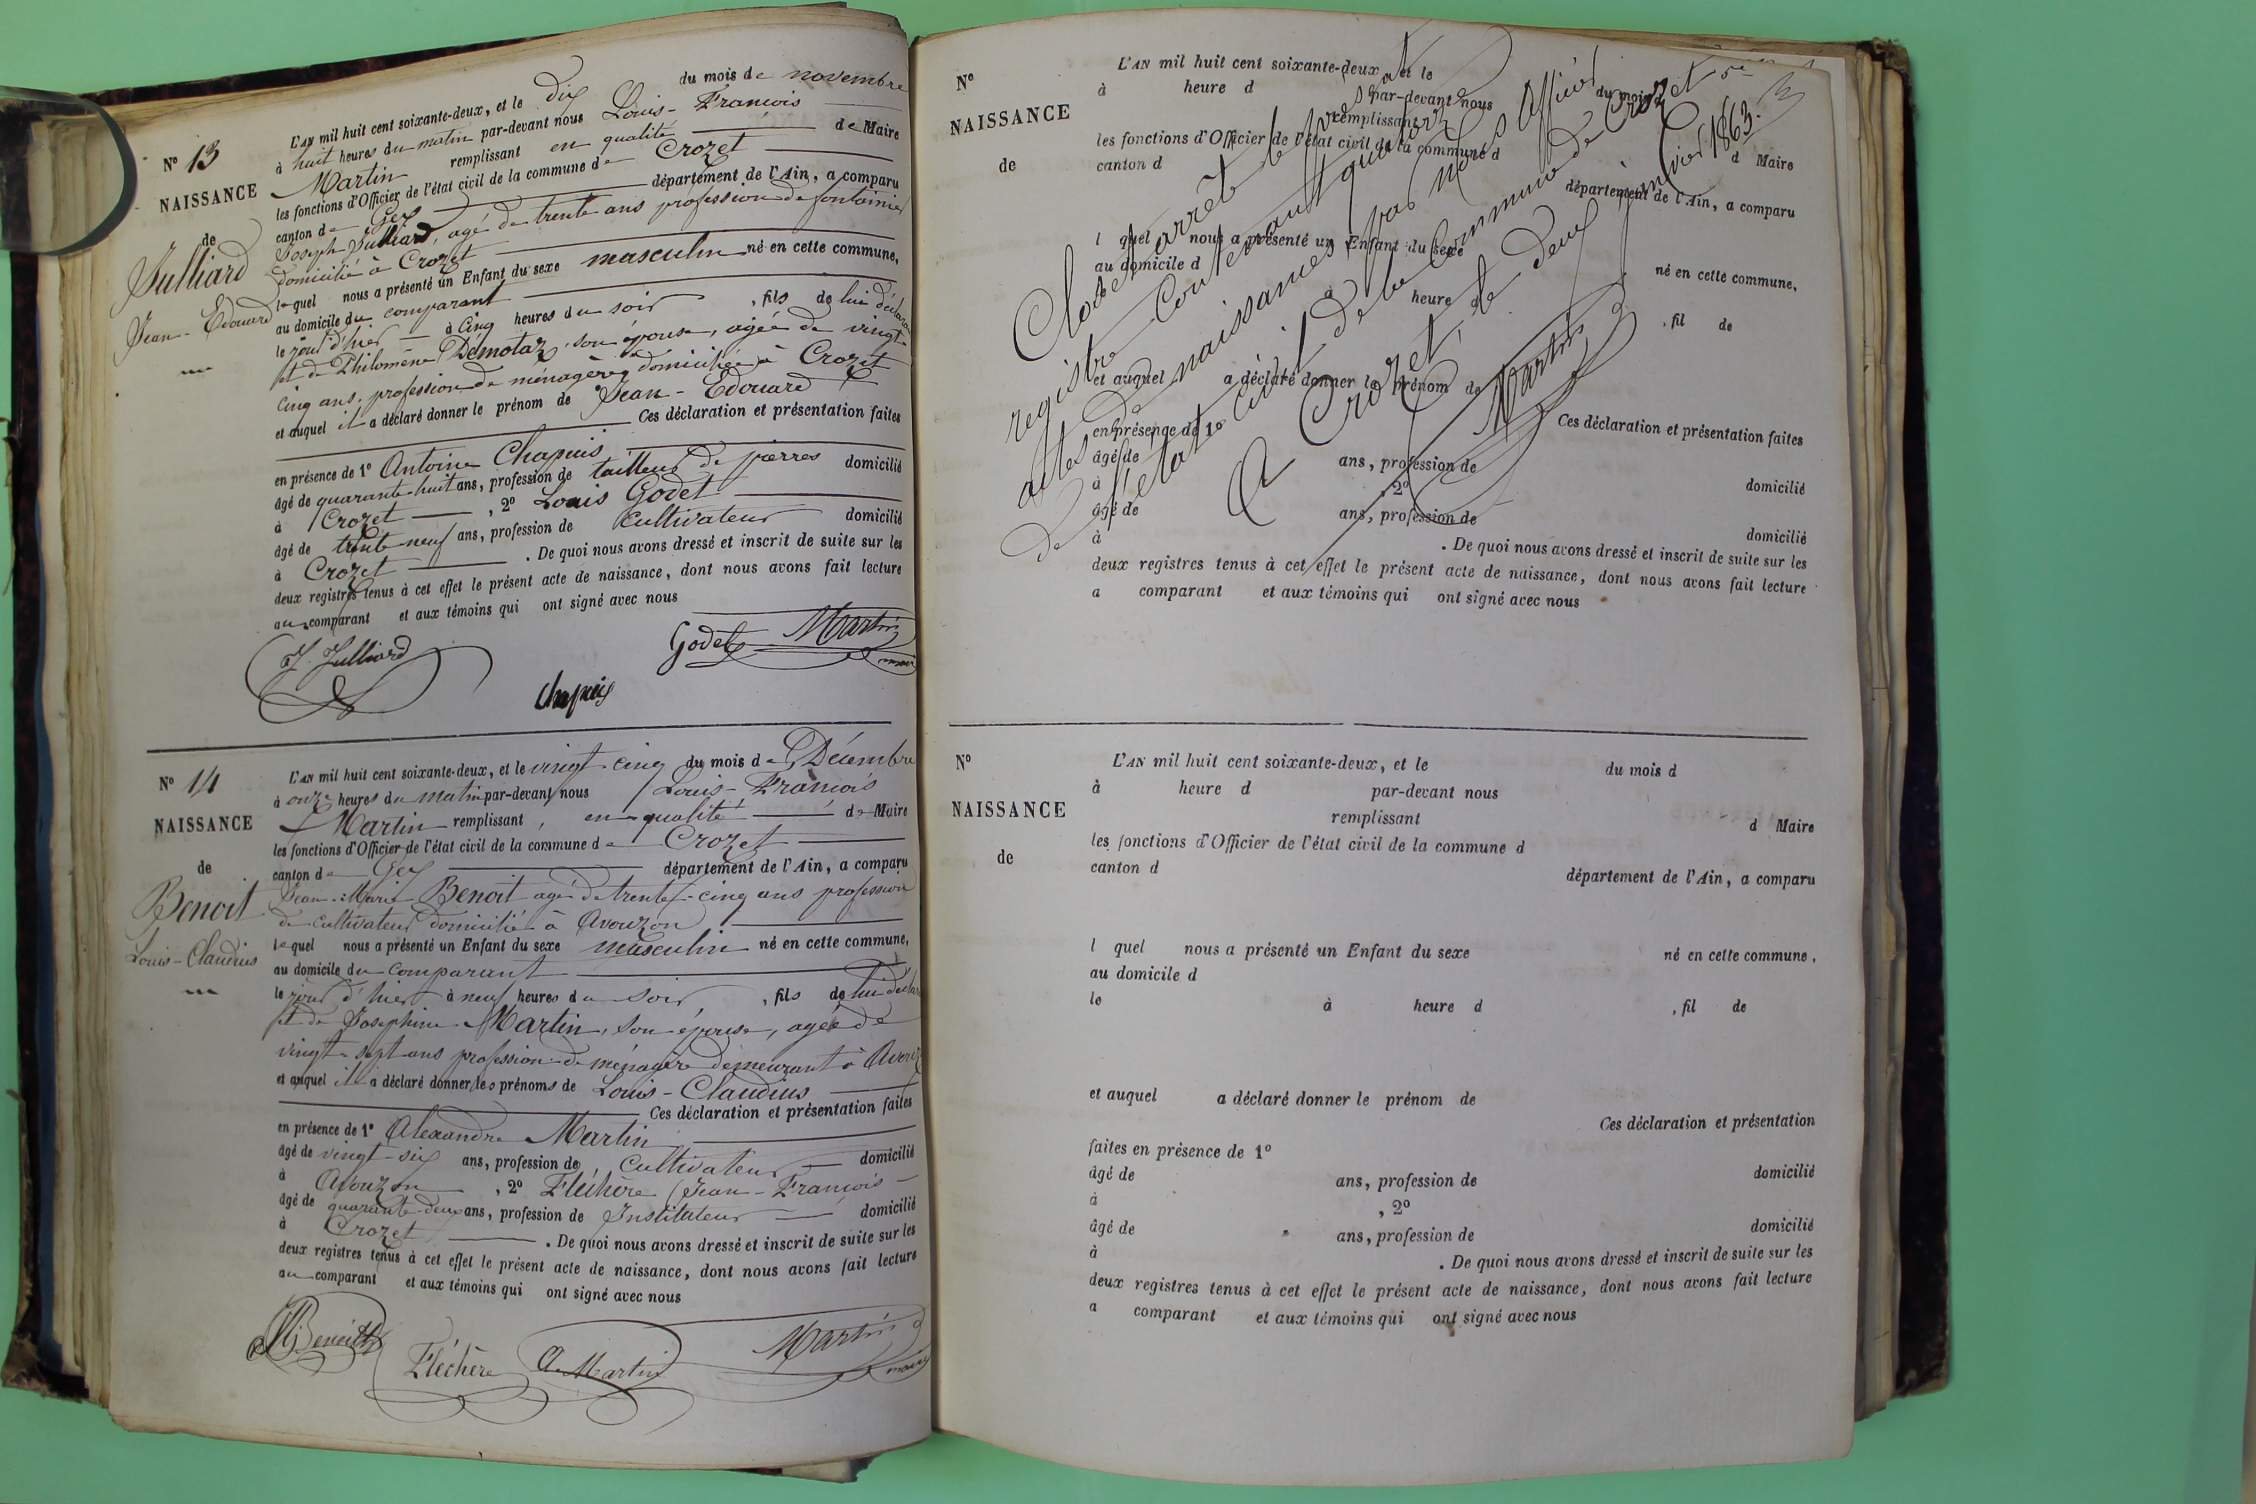 N° 13
NAISSANCE
de
Julliard
Jean-Edouard
L'AN mil huit cent soixante-deux, et le dix du mois de novembre
à huit heures du matin par-devant nous Louis-François
Martin remplissant en qualité de Maire
les fonctions d'Officier de l'état civil de la commune de Crozet
canton de Gex département de l'Ain, a comparu
Joseph Julliard, agé de trente ans profession de fontainier
domicilié à Crozet
lequel nous a présenté un Enfant du sexe masculin né en cette commune,
au domicile du comparant
le jour d'hier à Cinq heures du soir, fils de lui déclarant
et de Philomène Démotaz, son épouse, agée de vingt-
cinq ans, profession de ménagère, domiciliée à Crozet
et auquel il a déclaré donner le prénom de Jean-Edouard
Ces déclaration et présentation faites
en présence de 1° Antoine Chapuis
âgé de quarante-huit ans, profession de tailleur de pierres domicilié
à Crozet, 2° Louis Godet
âgé de trente neuf ans, profession de cultivateur domicilié
à Crozet. De quoi nous avons dressé et inscrit de suite sur les
deux registres tenus à cet effet le présent acte de naissance, dont nous avons fait lecture
au comparant et aux témoins qui ont signé avec nous
J. Julliard
Chapuis
Godet
Martin
maire
N° 14
NAISSANCE
de
Benoit
Louis-Claudius
L'AN mil huit cent soixante-deux, et le vingt-cinq du mois de Décembre
à onze heures du matin par-devant nous Louis-François
Martin remplissant, en qualité de Maire
les fonctions d'Officier de l'état civil de la commune de Crozet
canton de Gex département de l'Ain, a comparu
Jean-Marie Benoit agé de trente-cinq ans profession
de cultivateur domicilié à Avouzon
lequel nous a présenté un Enfant du sexe masculin né en cette commune,
au domicile du comparant
le jour d'hier à neuf heures du soir, fils de lui déclar
et de Josephine Martin, son épouse, agée de
vingt-sept ans profession de ménagère demeurant à Avouz
et auquel il a déclaré donner les prénoms de Louis-Claudius
Ces déclaration et présentation faites
en présence de 1° Alexandre Martin
âgé de vingt-six ans, profession de Cultivateur domicilié
à Avouzon, 2° Fléchère (Jean-François
âgé de quarante-deux ans, profession de Instituteur domicilié
à Crozet. De quoi nous avons dressé et inscrit de suite sur les
deux registres tenus à cet effet le présent acte de naissance, dont nous avons fait lecture
au comparant et aux témoins qui ont signé avec nous
Benoit
Fléchère
A. Martin
Martin
maire
N°
NAISSANCE
de
L'AN mil huit cent soixante-deux, et le du mois d
à heure d par-devant nous
remplissant d Maire
les fonctions d'Officier de l'état civil de la commune d
canton d département de l'Ain, a comparu
l quel nous a présenté un Enfant du sexe né en cette commune,
au domicile d
le à heure d, fil de
et auquel a déclaré donner le prénom de
Ces déclaration et présentation faites
en présence de 1°
âgé de ans, profession de domicilié
à, 2°
âgé de ans, profession de domicilié
à. De quoi nous avons dressé et inscrit de suite sur les
deux registres tenus à cet effet le présent acte de naissance, dont nous avons fait lecture
a comparant et aux témoins qui ont signé avec nous
Clos et arrêté le présent
registre contenant quatorze
actes de naissances, par nous Officier
de l'état civil de la Commune de Crozet
A Crozet, le deux janvier 1863.
Martin
N°
NAISSANCE
de
L'AN mil huit cent soixante-deux, et le du mois d
à heure d par-devant nous
remplissant d Maire
les fonctions d'Officier de l'état civil de la commune d
canton d département de l'Ain, a comparu
l quel nous a présenté un Enfant du sexe né en cette commune,
au domicile d
le à heure d, fil de
et auquel a déclaré donner le prénom de
Ces déclaration et présentation
faites en présence de 1°
âgé de ans, profession de domicilié
à, 2°
âgé de ans, profession de domicilié
à. De quoi nous avons dressé et inscrit de suite sur les
deux registres tenus à cet effet le présent acte de naissance, dont nous avons fait lecture
a comparant et aux témoins qui ont signé avec nous